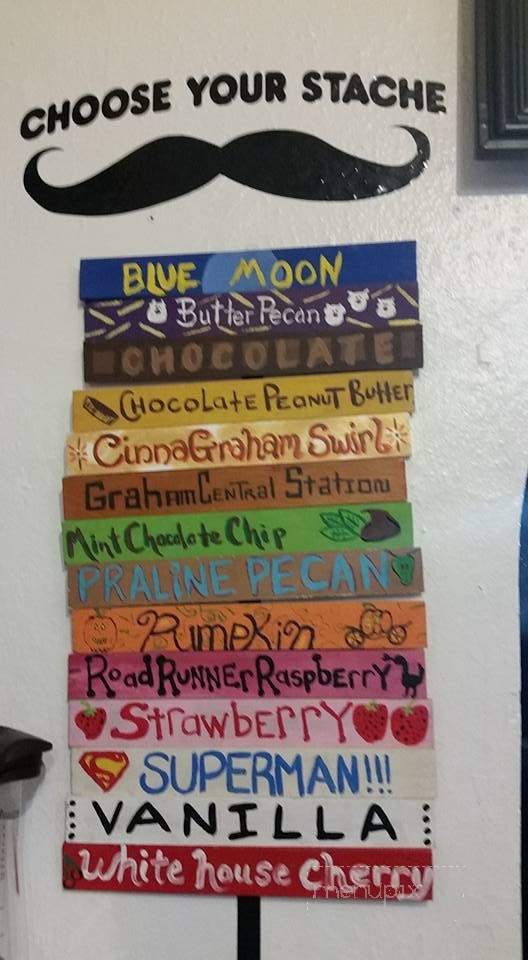 CHOOSE YOUR STACHE
BLUE MOON
Butter Pecan
CHOCOLATE
CHOCOLATE PEANUT BUTTER
CinnaGraham Swirl
Graham Central Station
Mint Chocolate Chip
PRALINE PECAN
Pumpkin
RoadRunner Raspberry
Strawberry
S SUPERMAN!!!
VANILLA
White house Cherry
menupix